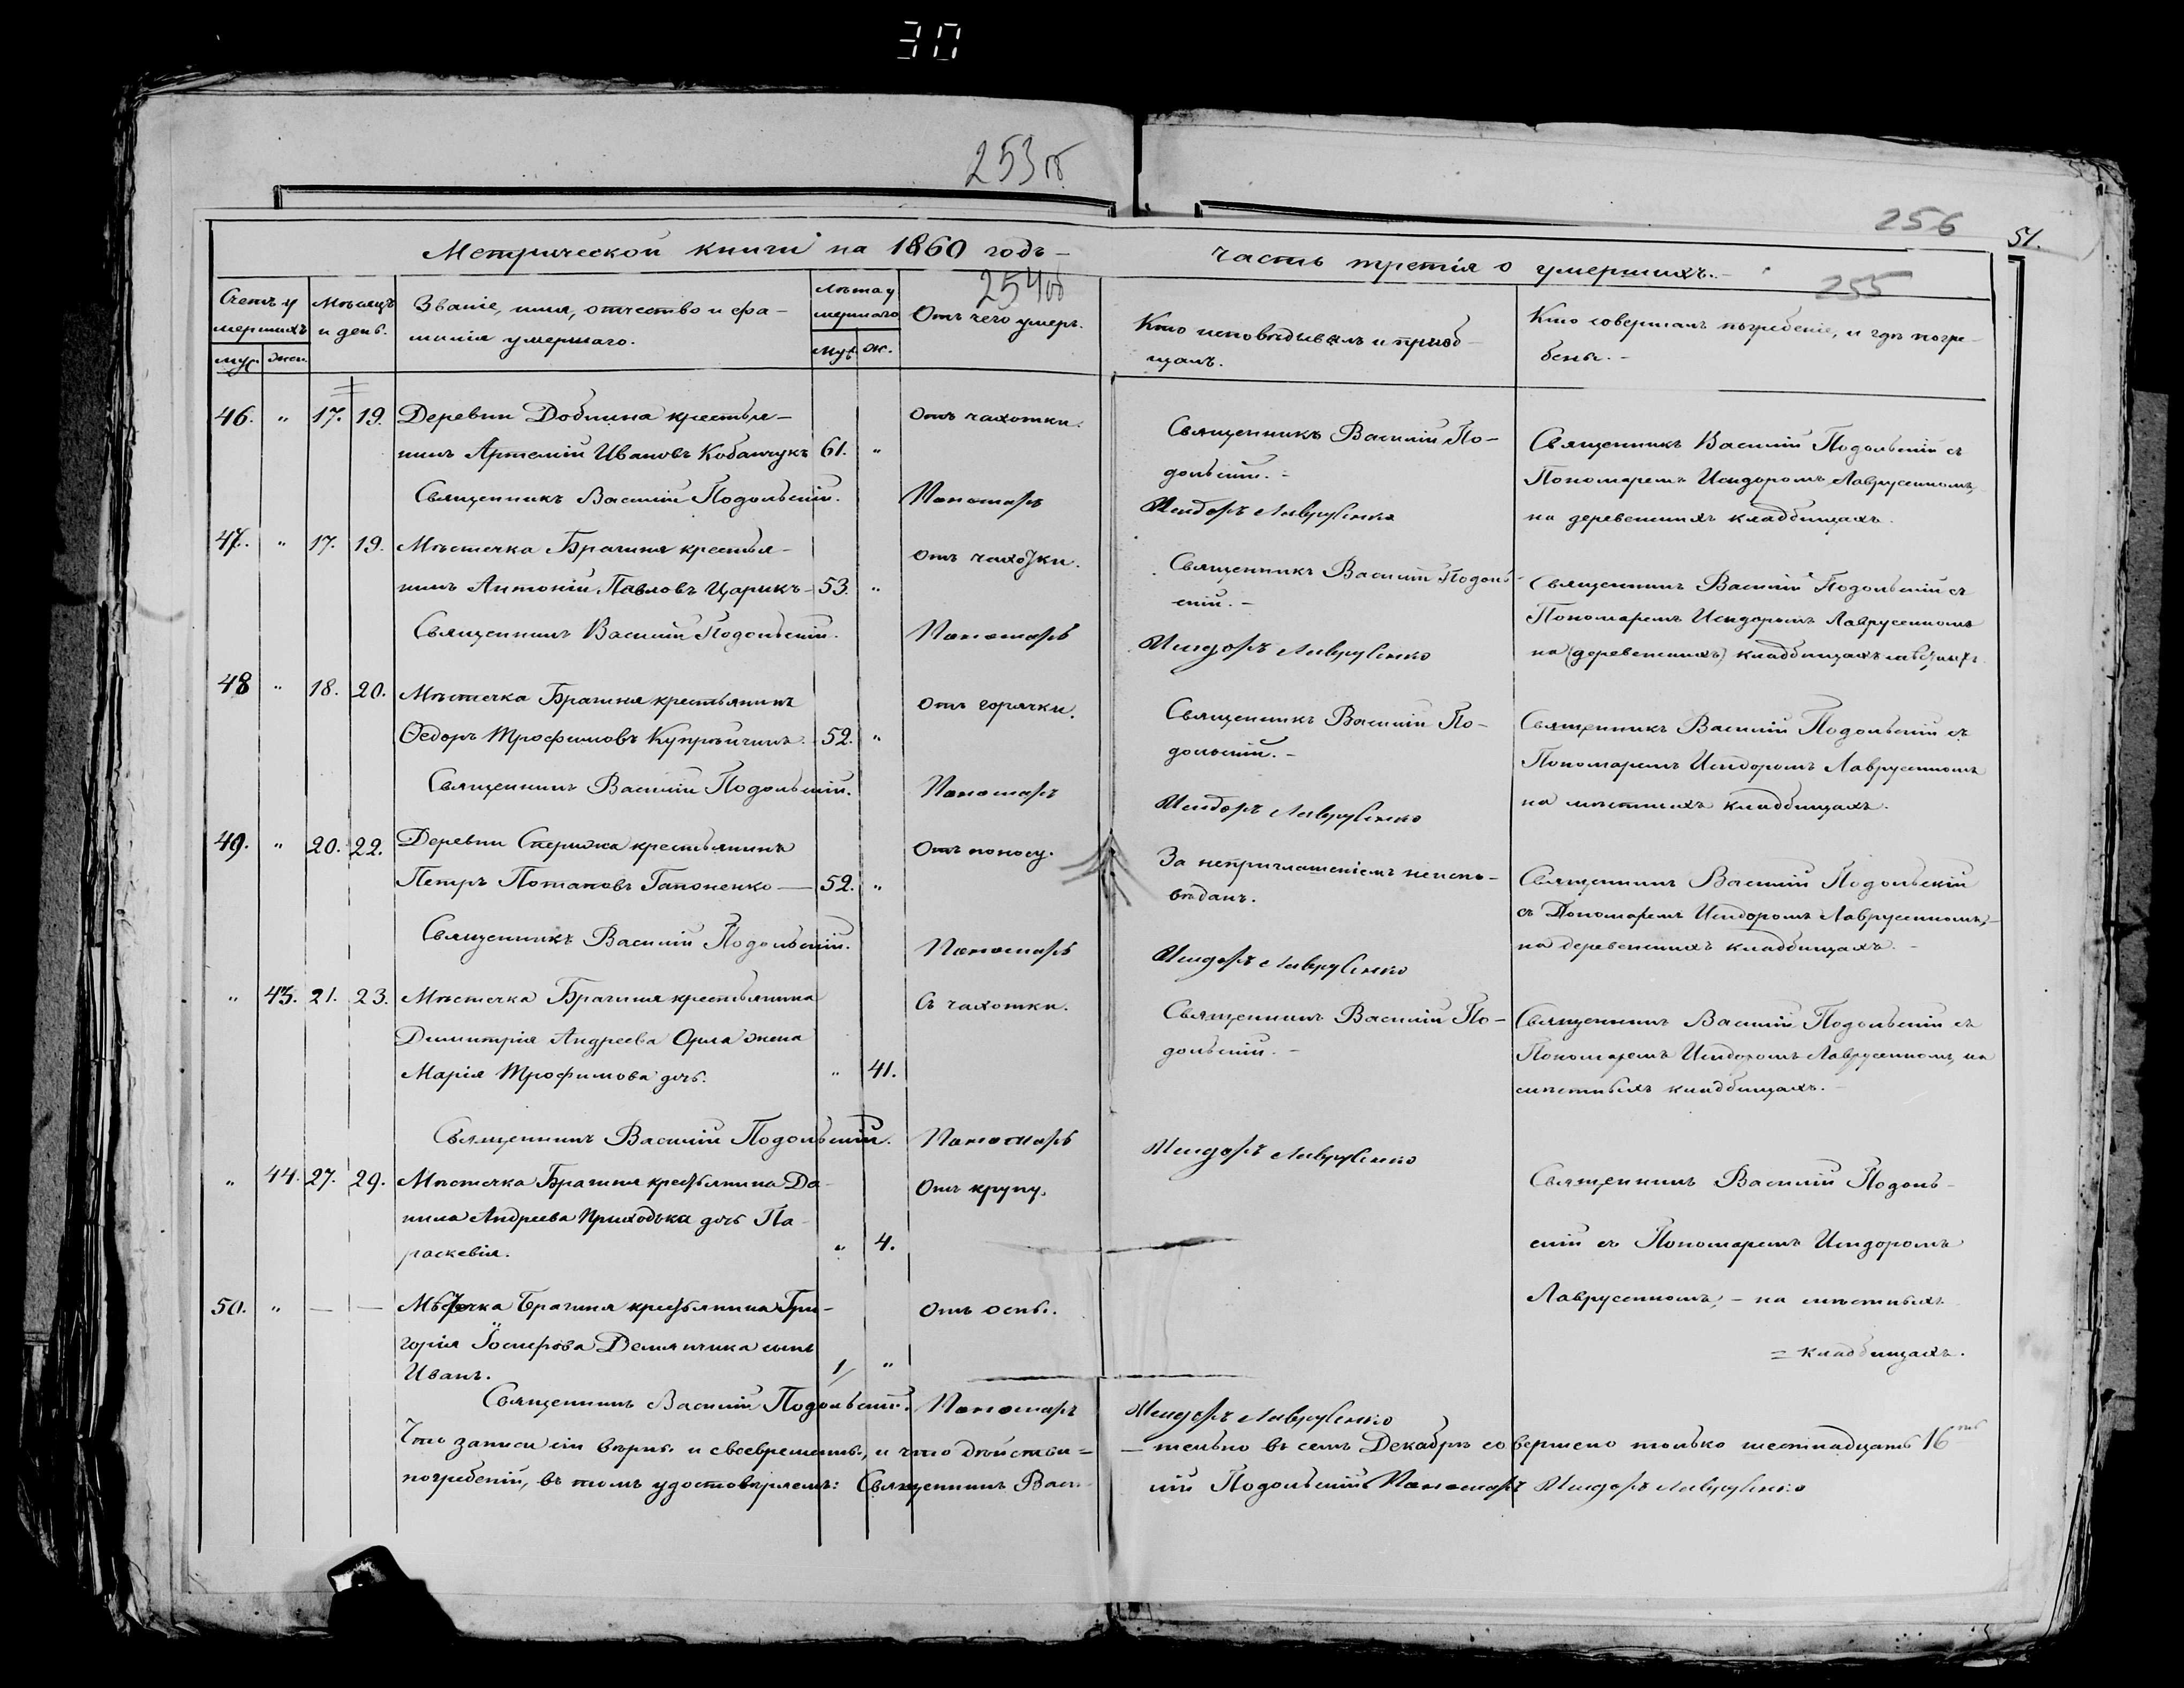 30
253 об
256
51.
Метрической книги на 1860 годъ –
часть третія о умершихъ. –
254 об
255
Счетъ умершихъ
муж. жен.
Мѣсяцъ и день.
Званіе, имя, отчество и фамилія умершаго.
Лѣта умершаго
муж. ж.
Отъ чего умеръ.
Кто исповѣдывалъ и пріобщалъ.
Кто совершалъ погребеніе, и гдѣ погребены. –
46. " 17. 19. Деревни Доблина крестья–
нинъ Артемій Ивановъ Кобанчукъ 61. "
Отъ чахотки.
Священникъ Василій По–
дольскій. –
Священникъ Василій Подольскій съ
Пономаремъ Исидоромъ Лаврусенкомъ,
на деревенскихъ кладбищахъ.
Священникъ Василій Подольскій. Пономарь Исидоръ Лаврусенко
47. " 17. 19. Мѣстечка Брагиня крестья–
нинъ Антоній Павловъ Царикъ – 53. "
отъ чахотки.
Священникъ Василій Подоль–
скій. –
Священникъ Василій Подольскій съ
Пономаремъ Исидоромъ Лаврусенкомъ
на (деревенскихъ) кладбищахъ
Священникъ Василій Подольскій. Пономарь Исидоръ Лаврусенко
48 " 18. 20. Мѣстечка Брагиня крестьянинъ
Ѳедоръ Трофимовъ 52. "
Отъ горячки.
Священникъ Василій По–
дольскій. –
Священникъ Василій Подольскій съ
Пономаремъ Исидоромъ Лаврусенкомъ
на мѣстныхъ кладбищахъ.
Священникъ Василій Подольскій. Пономарь Исидоръ Лаврусенко
49. " 20. 22. Деревни Спержа крестьянинъ
Петръ Потаповъ Гапоненко — 52. "
Отъ поносу.
За неприглашеніемъ неиспо–
вѣданъ.
Священникъ Василій Подольскій
съ Пономаремъ Исидоромъ Лаврусенкомъ, –
на деревенскихъ кладбищахъ. –
Священникъ Василій Подольскій. Пономарь Исидоръ Лаврусенко
" 43. 21. 23. Мѣстечка Брагиня крестьянина
Димитрія Андреева Орла жена
Марія Трофимова дочь. " 41.
Съ чахотки.
Священникъ Василій По–
дольскій. –
Священникъ Василій Подольскій съ
Пономаремъ Исидоромъ Лаврусенкомъ, на
мѣстныхъ кладбищахъ. –
Священникъ Василій Подольскій. Пономарь Исидоръ Лаврусенко
" 44. 27. 29. Мѣстечка Брагиня крестьянина Да–
нила Андреева Приходька дочь Па–
раскевія. " 4.
Отъ крупу.
Священникъ Василій Подоль–
скій съ Пономаремъ Исидоромъ
Лаврусенкомъ, – на мѣстныхъ
= кладбищахъ.
50. " — — Мѣстечка Брагиня крестьянина Гри–
горія Іосифова Демянчика сынъ
Иванъ. 1/ "
Отъ оспы.
Священникъ Василій Подольскій. Пономарь Исидоръ Лаврусенко
Что записи сіи вѣрны и своевременны, и что дѣйстви=
– тельно въ семъ Декабрѣ совершено только шестнадцать 16ть
погребеній, въ томъ удостовѣряемъ: Священникъ Васи–
лій Подольскій Пономарь Исидоръ Лаврусенко